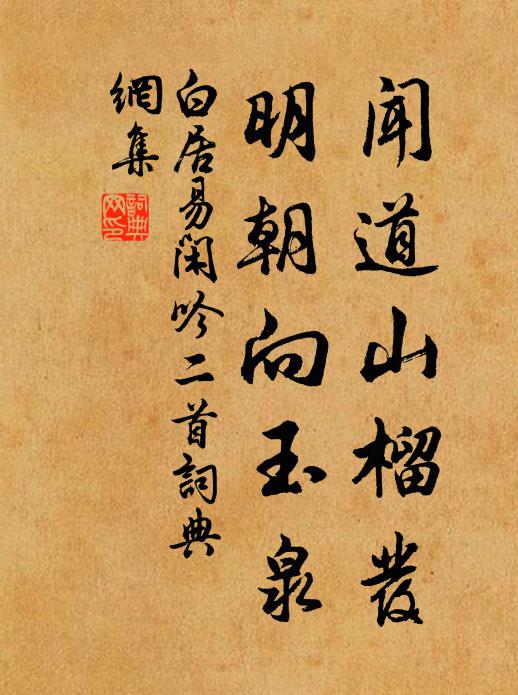 闻道山榴發
明朝向玉泉
白居易闲吟二首詞典
網集
詞典
网印